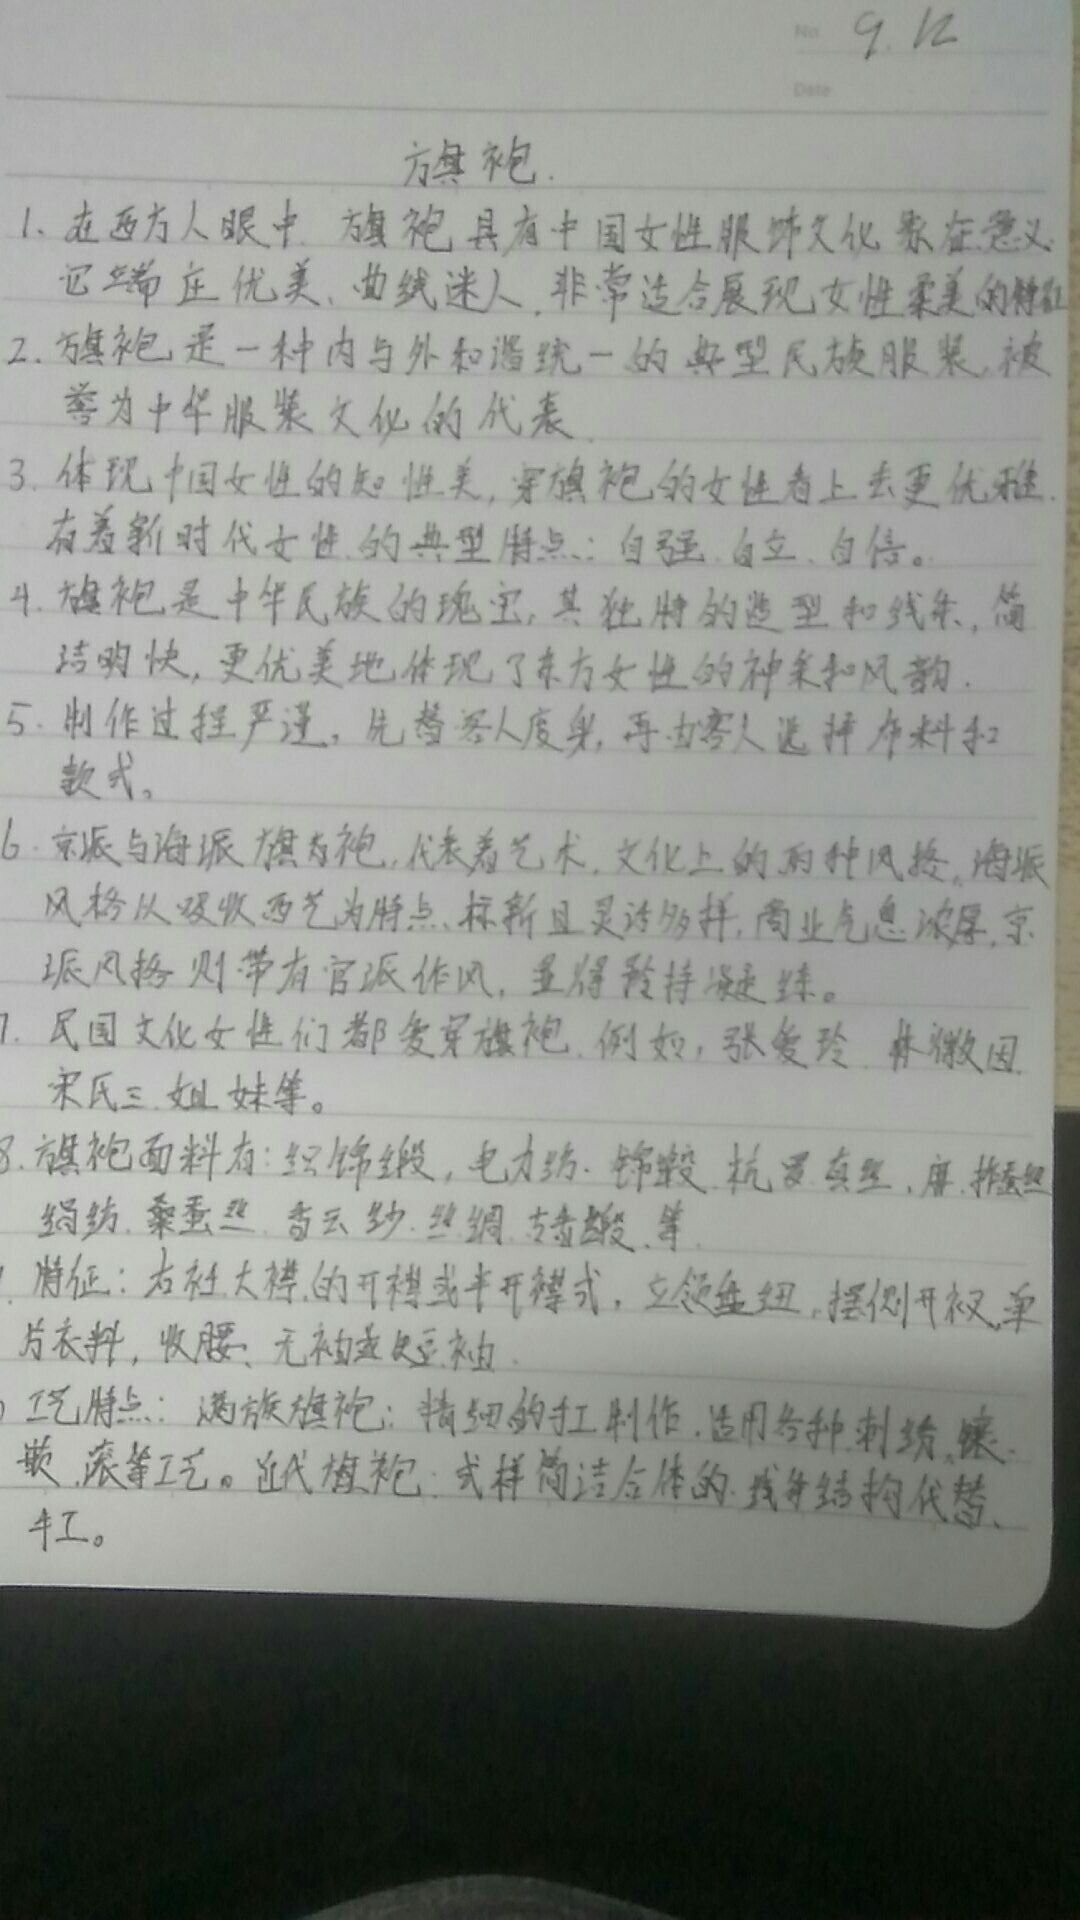 No. 9.12
Date
旗袍.
1. 在西方人眼中, 旗袍具有中国女性服饰文化象征意义.
它端庄优美、曲线迷人, 非常适合展现女性柔美的特征
2. 旗袍是一种内与外和谐统一的典型民族服装, 被
誉为中华服装文化的代表.
3. 体现中国女性的知性美, 穿旗袍的女性看上去更优雅.
有着新时代女性的典型特点: 自强、自立、自信。
4. 旗袍是中华民族的瑰宝, 其独特的造型和线条, 简
洁明快, 更优美地体现了东方女性的神采和风韵.
5. 制作过程严谨, 先替客人度身, 再由客人选择布料和
款式。
6. 京派与海派旗袍, 代表着艺术, 文化上的两种风格, 海派
风格以吸收西艺为特点, 标新且灵活多样, 商业气息浓厚, 京
派风格则带有官派作风, 显得矜持凝练。
7. 民国文化女性们都爱穿旗袍, 例如, 张爱玲 林徽因
宋氏三姐妹等。
8. 旗袍面料有: 织锦缎, 电力纺. 锦缎. 杭罗. 真丝, 麻. 柞蚕丝
绢纺. 桑蚕丝. 香云纱. 丝绸. 缎. 等.
特征: 右衽大襟的开襟或半开襟式, 立领盘纽, 摆侧开衩, 单
片衣料, 收腰、无袖或短袖.
工艺特点: 满族旗袍: 精细的手工制作, 适用各种刺绣、镶.
嵌. 滚等工艺。近代旗袍: 式样简洁合体的线条结构代替
手工。